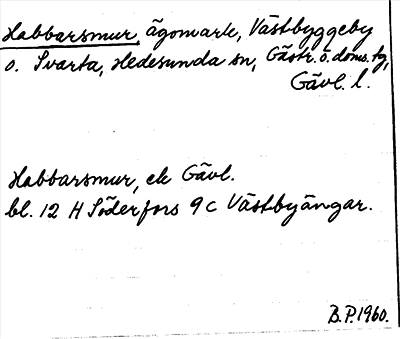 Habbarsmur, ägomark, Västbyggeby
o. Svarta, Hedesunda sn, Gästr. ö. doms. tg,
Gävl. l.
Habbarsmur, ek Gävl.
bl. 12 H Söderfors 9 c Västbyängar.
B.P. 1960.